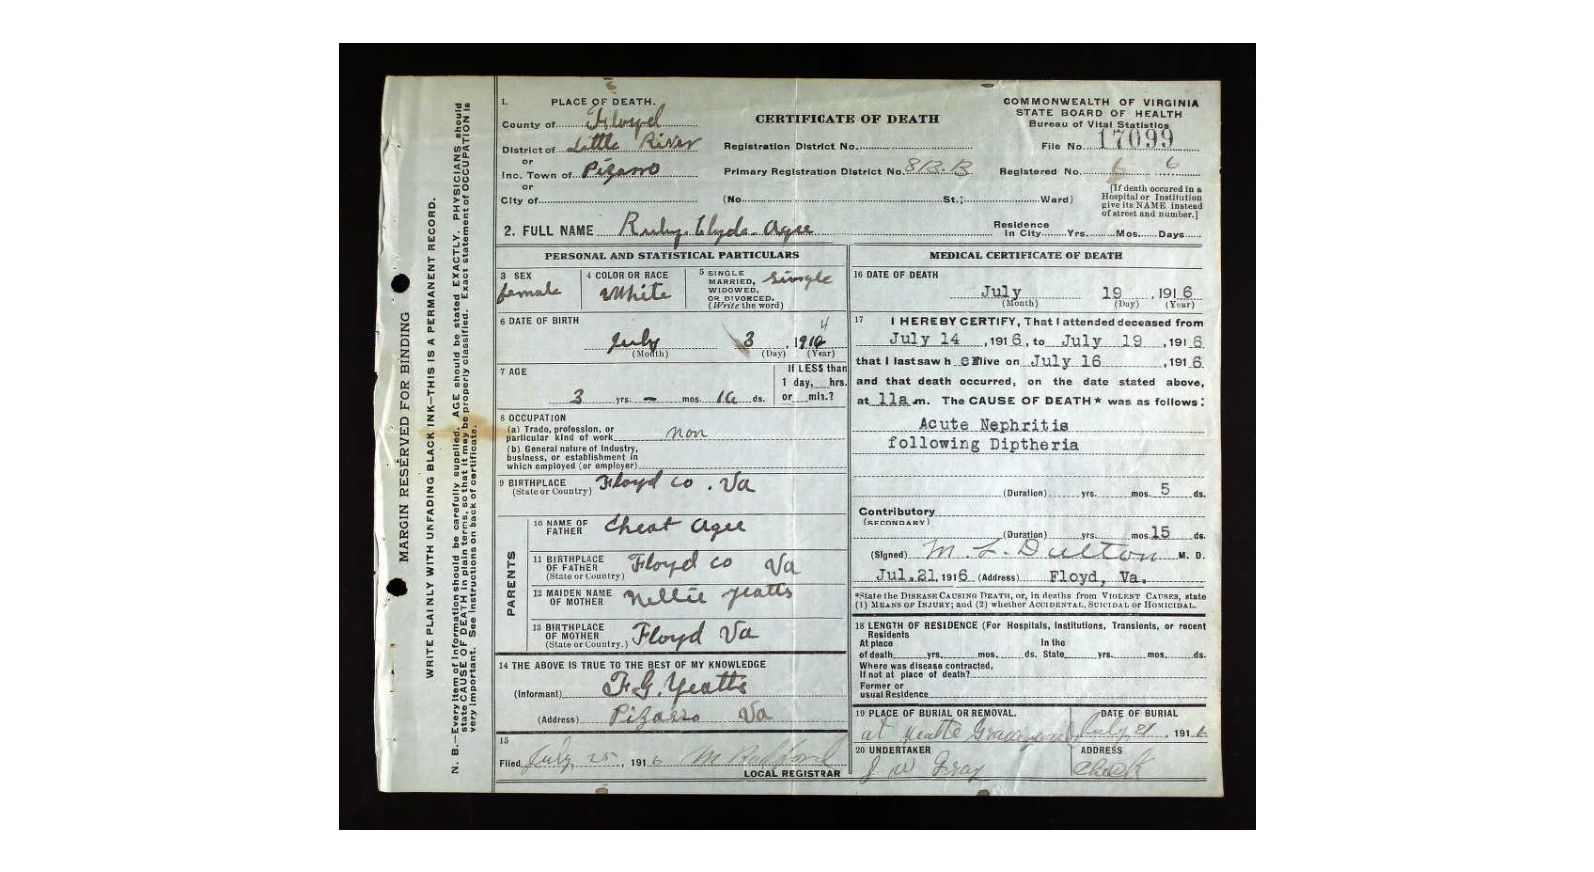 1. PLACE OF DEATH.
County of Floyd
District of Little River
or
Inc. Town of Pizarro
or
City of
CERTIFICATE OF DEATH
Registration District No.
Primary Registration District No. 813.B
(No. St.; Ward)
COMMONWEALTH OF VIRGINIA
STATE BOARD OF HEALTH
Bureau of Vital Statistics
File No. 17099
Registered No. 6
[If death occured in a
Hospital or Institution
give its NAME instead
of street and number.]
2. FULL NAME Ruby Clyde Agee
Residence
In City Yrs. Mos. Days
PERSONAL AND STATISTICAL PARTICULARS
3 SEX
female
4 COLOR OR RACE
White
5 SINGLE
MARRIED,
WIDOWED.
OR DIVORCED.
(Write the word)
single
6 DATE OF BIRTH
July 3, 191
(Month) (Day) (Year)
7 AGE
3 yrs. – mos. 16 ds.
If LESS than
1 day, hrs.
or min.?
8 OCCUPATION
(a) Trade, profession, or
particular kind of work non
(b) General nature of Industry,
business, or establishment in
which employed (or employer)
9 BIRTHPLACE
(State or Country) Floyd co. Va
PARENTS
10 NAME OF
FATHER Cheat Agee
11 BIRTHPLACE
OF FATHER
(State or Country) Floyd co Va
12 MAIDEN NAME
OF MOTHER Nellie Yeatts
13 BIRTHPLACE
OF MOTHER
(State or Country.) Floyd Va
14 THE ABOVE IS TRUE TO THE BEST OF MY KNOWLEDGE
(Informant) F.G. Yeatts
(Address) Pizarro Va
15
Filed July 25, 1916
LOCAL REGISTRAR
MEDICAL CERTIFICATE OF DEATH
16 DATE OF DEATH
July 19, 1916
(Month) (Day) (Year)
17 I HEREBY CERTIFY, That I attended deceased from
July 14, 1916, to July 19, 1916
that I last saw h er alive on July 16, 1916
and that death occurred, on the date stated above,
at 11a m. The CAUSE OF DEATH* was as follows:
Acute Nephritis
following Diptheria
(Duration) yrs. mos. 5 ds.
Contributory
(SECONDARY)
(Duration) yrs. mos. 15 ds.
(Signed) M. L. Dalton M. D.
Jul.21, 1916 (Address) Floyd, Va.
*State the DISEASE CAUSING DEATH, or, in deaths from VIOLENT CAUSES, state
(1) MEANS OF INJURY; and (2) whether ACCIDENTAL, SUICIDAL or HOMICIDAL.
18 LENGTH OF RESIDENCE (For Hospitals, Institutions, Transients, or recent
Residents
At place In the
of death yrs. mos. ds. State yrs. mos. ds.
Where was disease contracted,
If not at place of death?
Former or
usual Residence
19 PLACE OF BURIAL OR REMOVAL.
at Yeatts Graveyard
DATE OF BURIAL
July 21, 1916
20 UNDERTAKER
J W Gray
ADDRESS
Check
MARGIN RESERVED FOR BINDING
WRITE PLAINLY WITH UNFADING BLACK INK—THIS IS A PERMANENT RECORD.
N. B.—Every item of information should be carefully supplied. AGE should be stated EXACTLY. PHYSICIANS should
state CAUSE OF DEATH in plain terms, so that it may be properly classified. Exact statement of OCCUPATION is
very important. See instructions on back of certificate.